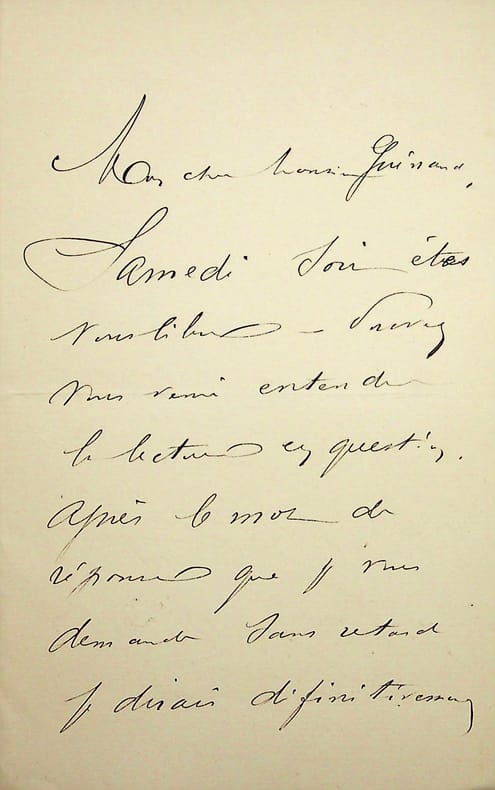 Mon cher Monsieur Guéraud,
Samedi soir êtes
vous libre – Pouvez
vous venir entendre
la lecture en question.
Après le mot de
réponse que je vous
demande sans retard
je dirais définitivement